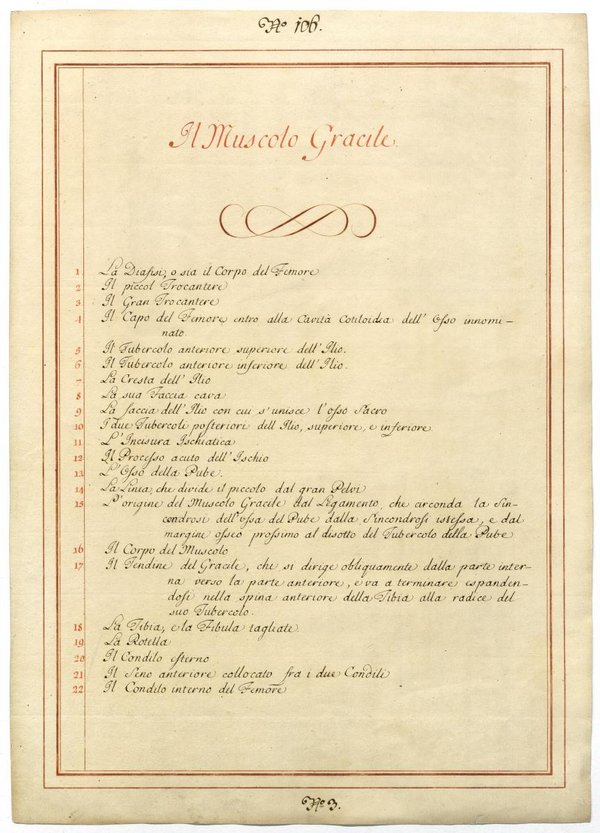 Nº 106.
Il Muscolo Gracile.
1 La Diafisi, o sia il Corpo del Femore
2 Il piccol Trocantere
3 Il Gran Trocantere
4 Il Capo del Femore entro alla Cavità Cotiloidea dell' Osso innomi-
nato.
5 Il Tubercolo anteriore superiore dell' Ilio.
6 Il Tubercolo anteriore inferiore dell' Ilio.
7 La Cresta dell' Ilio
8 La sua Faccia cava
9 La faccia dell' Ilio con cui s'unisce l'osso Sacro
10 I due Tubercoli posteriori dell Ilio, superiore, e inferiore
11 L'Incisura Ischiatica
12 Il Processo acuto dell'Ischio
13 L'Osso della Pube.
14 La Linea, che divide il piccolo dal gran Pelvi
15 L'origine del Muscolo Gracile dal Legamento, che circonda la Sin-
condrosi dell'ossa del Pube dalla Sincondrosi istessa, e dal
margine osseo prossimo al disotto del Tubercolo della Pube
16 Il Corpo del Muscolo
17 Il Tendine del Gracile, che si dirige obliquamente dalla parte inter-
na verso la parte anteriore, e va a terminare espanden-
dosi nella spina anteriore della Tibia alla radice del
suo Tubercolo.
18 La Tibia, e la Fibula tagliate
19 La Rotella
20 Il Condilo esterno
21 Il Seno anteriore collocato fra i due Condili
22 Il Condilo interno del Femore
Nº 3.